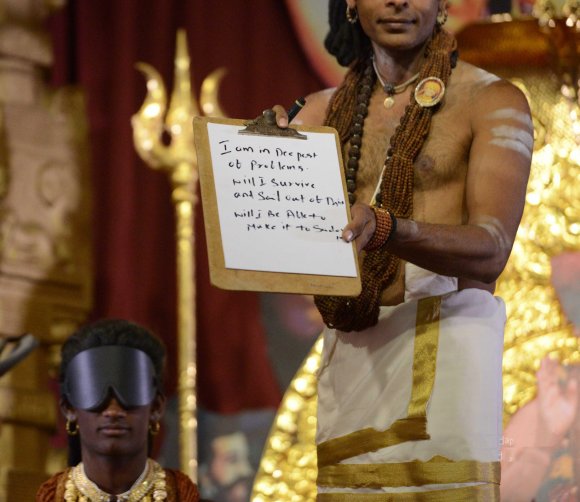 I am in Deepest
of Problems.
Will I Survive
and Sail out of
Will I Be Able to
Make it to